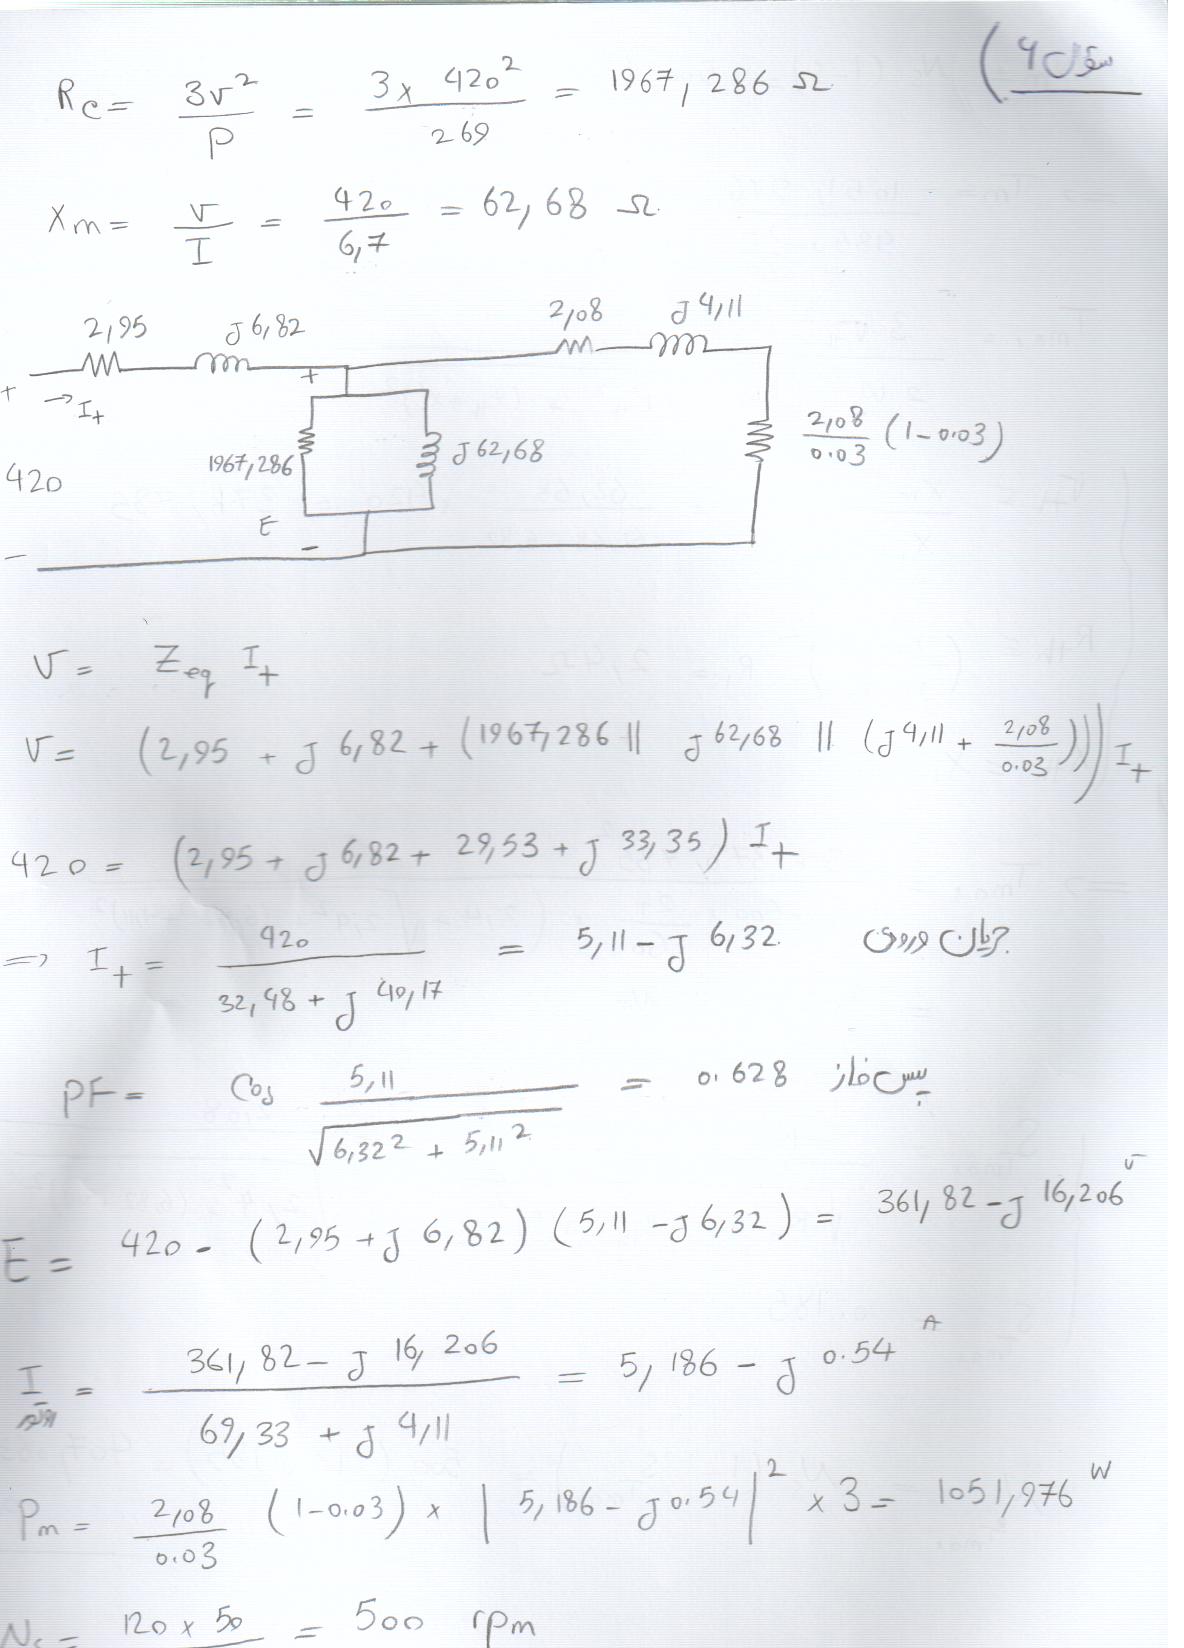 سوال 6)
Rc = 3v² / P = 3 x 420² / 269 = 1967,286 Ω
Xm = v / I = 420 / 6,7 = 62,68 Ω
2,95 J 6,82 2,08 J 4,11
+ → I+ +
1967,286 J 62,68 2,08 / 0.03 (1-0.03)
420
E
- -
v = Zeq I+
v = (2,95 + J 6,82 + (1967,286 || J 62,68 || (J 4,11 + 2,08 / 0.03))) I+
420 = (2,95 + J 6,82 + 29,53 + J 33,35) I+
=> I+ = 420 / 32,48 + J 40,17 = 5,11 - J 6,32 جریان ورودی
PF = Cos 5,11 / √6,32² + 5,11² = 0.628 پس فاز
E = 420 - (2,95 + J 6,82) (5,11 - J 6,32) = 361,82 - J 16,206 v
I روتور = 361,82 - J 16,206 / 69,33 + J 4,11 = 5,186 - J 0.54 A
Pm = 2,08 / 0.03 (1-0.03) x | 5,186 - J 0.54 |² x 3 = 1051,976 W
Ns = 120 x 50 = 500 rpm